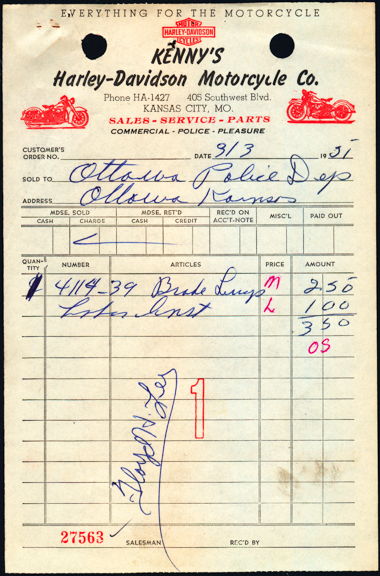 EVERYTHING FOR THE MOTORCYCLE
MOTOR
HARLEY-DAVIDSON
CYCLES
KENNY'S
Harley-Davidson Motorcycle Co.
Phone HA-1427 405 Southwest Blvd.
KANSAS CITY, MO.
SALES - SERVICE - PARTS
COMMERCIAL - POLICE - PLEASURE
CUSTOMER'S ORDER NO. DATE 9/3 1951
SOLD TO Ottawa Police Dep
ADDRESS Ottawa Kansas
MDSE. SOLD MDSE. RET'D REC'D ON ACC'T-NOTE MISC'L PAID OUT
CASH CHARGE CASH CREDIT
QUANTITY NUMBER ARTICLES PRICE AMOUNT
1 4114-39 Brake M 2 50
Labor Inst L 1 00
3 50
OS
1
Floyd H.
27563 SALESMAN REC'D BY